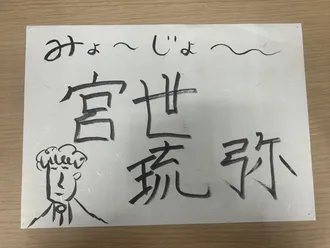 みょ〜じょ〜
宮世
琉弥